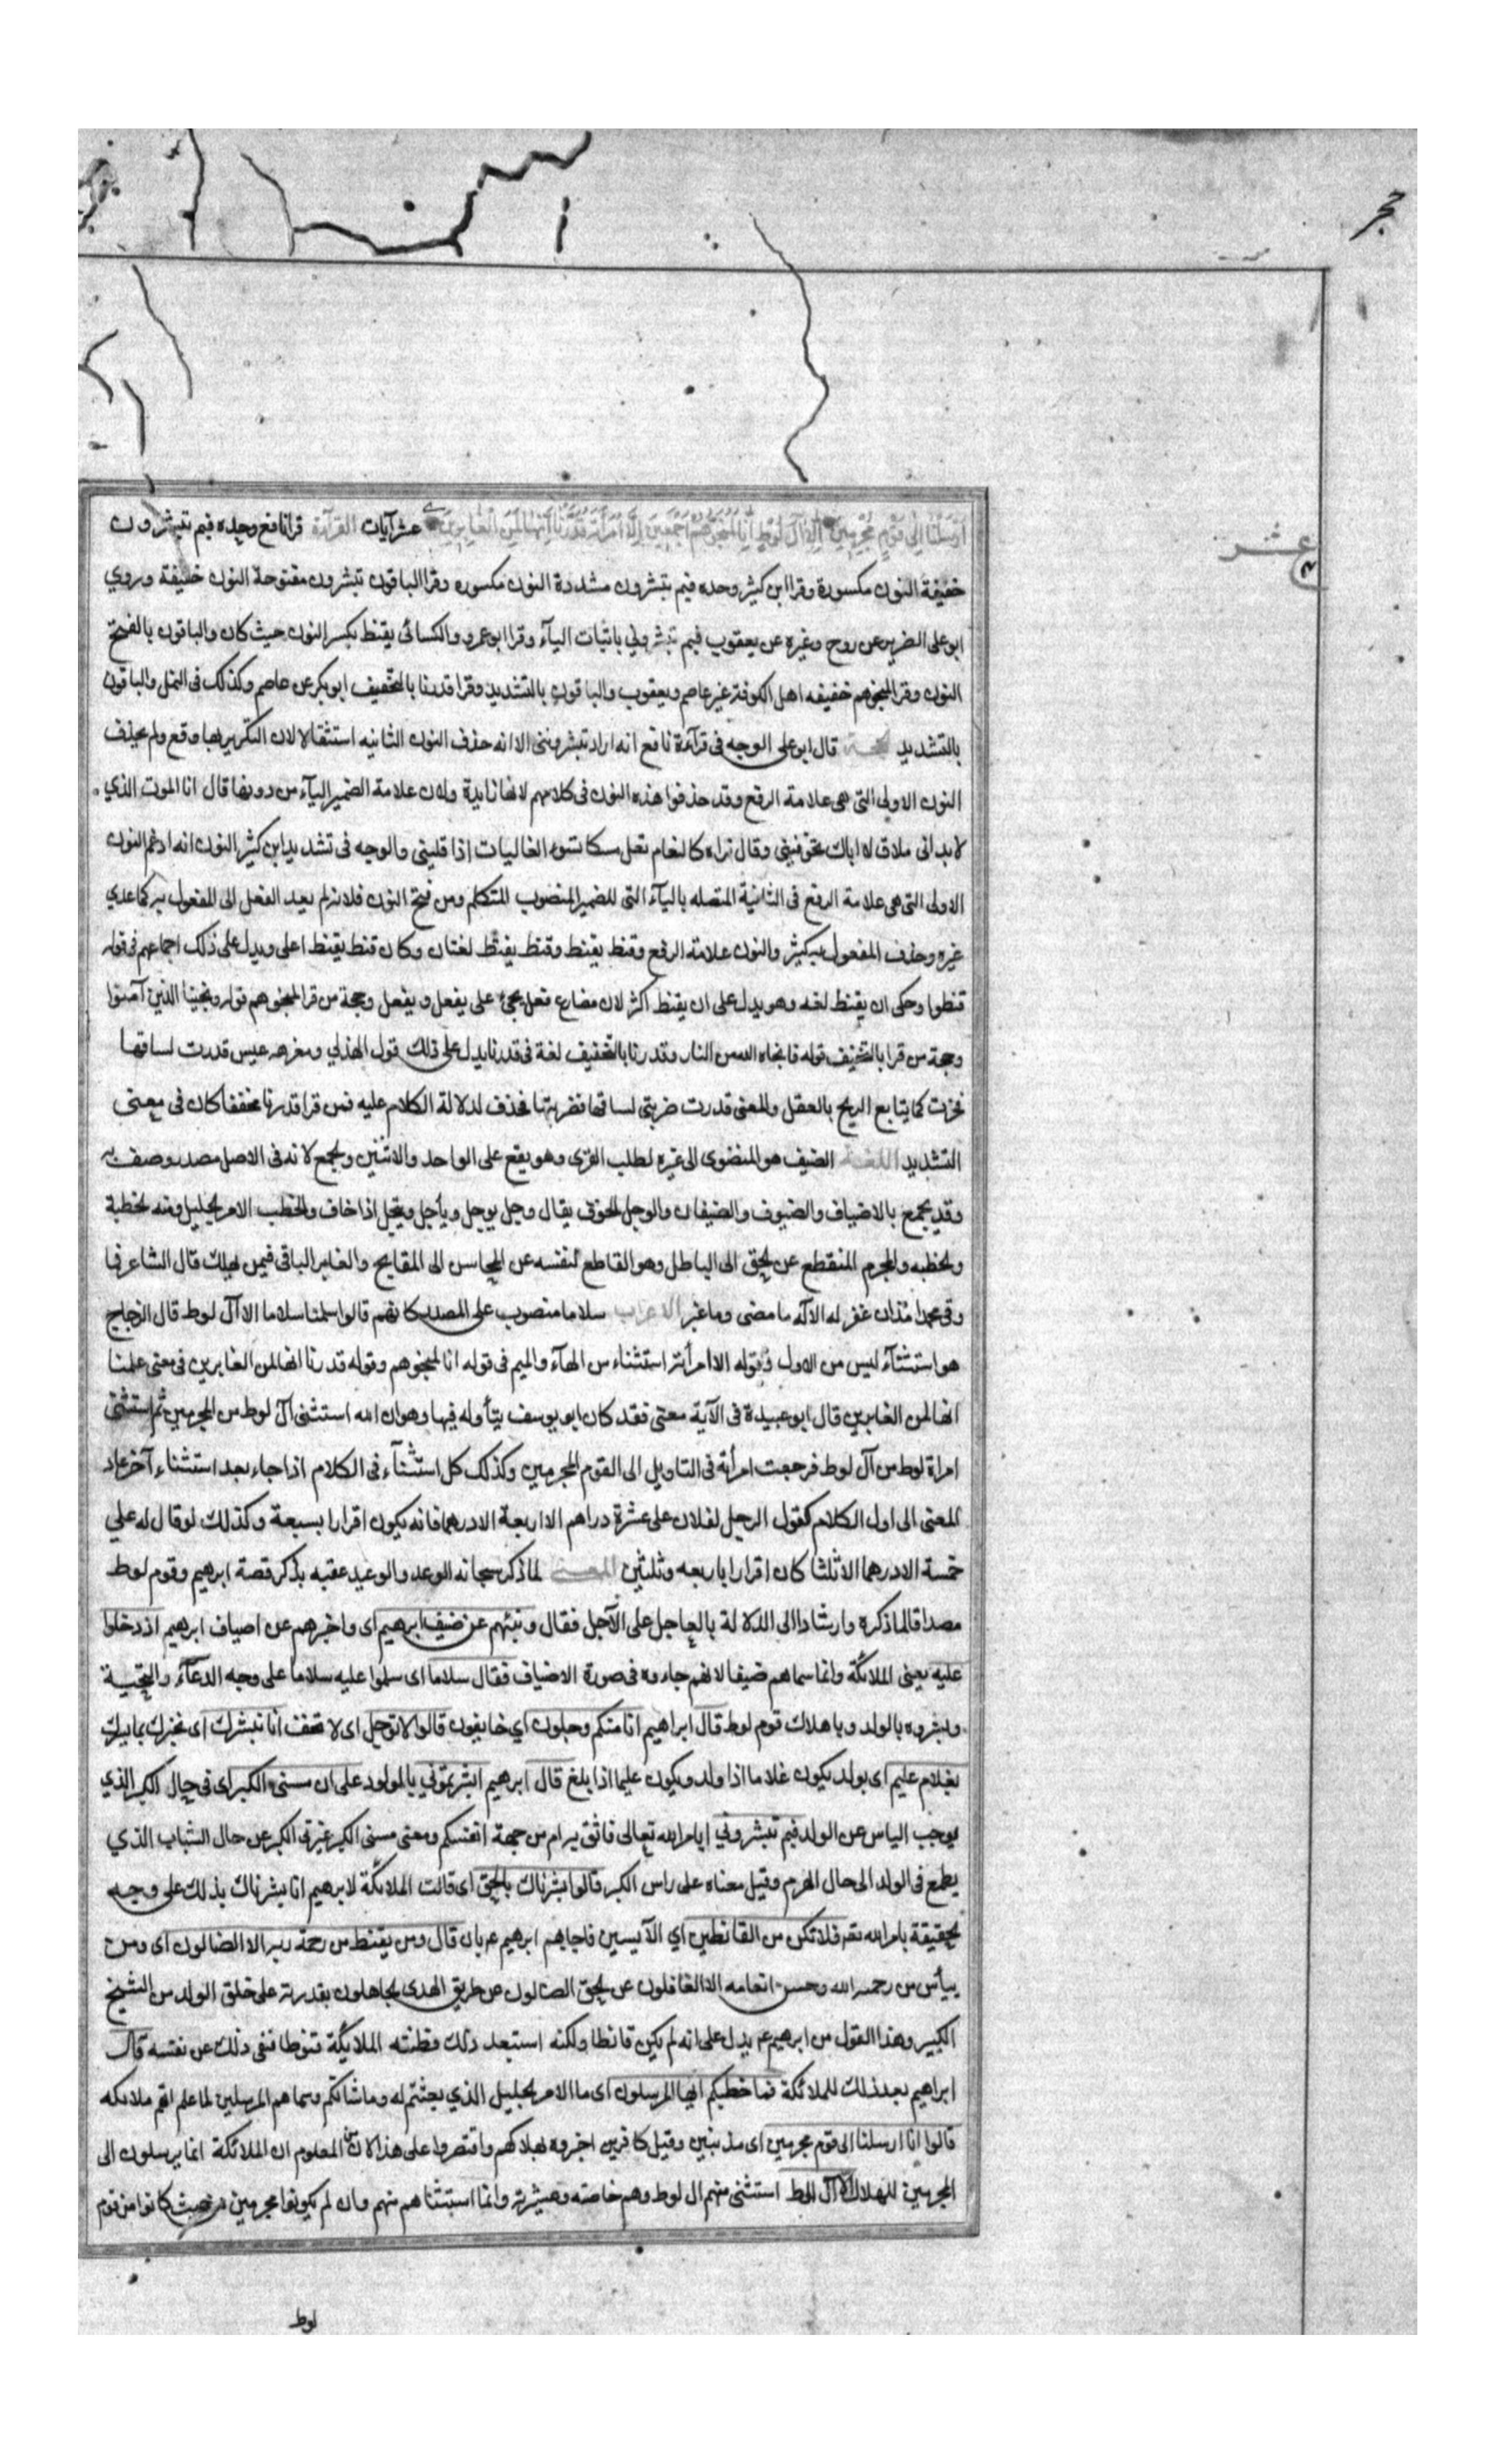 حجر
عشر
ارسلنا الى قوم مجرمين الا آل لوط انا لمنجوهم اجمعين الا امرأته قدرنا انها لمن الغابرين عشر آيات القرآءة قرا نافع وحده فبم تبشرون
خفيفة النون مكسورة وقرا ابن كثير وحده فبم تبشرون مشددة النون مكسوره وقرا الباقون تبشرون مفتوحة النون خفيفة وروي
ابو على الضرير عن روح وغيره عن يعقوب فبم تبشروني باثبات اليآء وقرا ابو عمرو والكسائي يقنط بكسر النون حيث كان والباقون بالفتح
النون وقرا لمنجوهم خفيفه اهل الكوفة غير عاصم ويعقوب والباقون بالتشديد وقرا قدرنا بالتخفيف ابو بكر عن عاصم وكذلك فى النمل والباقون
بالتشديد الحجة قال ابو على الوجه فى قرآءة نافع انه اراد تبشروننى الا انه حذف النون الثانيه استثقالا لان التكرير بها وقع ولم يحذف
النون الاولى التى هى علامة الرفع وقد حذفوا هذه النون فى كلامهم لانها زايدة ولان علامة الضمير اليآء من دونها قال ابالموت الذي
لا بد انى ملاق لا اباك تخوفيني وقال تراه كالثغام يعل مسكا يسوء الفاليات اذا فليني والوجه فى تشديد ابن كثير النون انه ادغم النون
الاولى التى هى علامة الرفع فى الثانية المتصله باليآء التى للضمير المنصوب المتكلم ومن فتح النون فلانه لم يعد الفعل الى المفعول به كما عدي
غيره وحذف المفعول به كثير والنون علامة الرفع وقنط يقنط وقنط يقنط لغتان وكان قنط يقنط اعلى ويدل على ذلك اجماعهم فى قوله
قنطوا وحكى ان يقنط لغه وهو يدل على ان يقنط اكثر لان مضارع فعل يجئ على يفعل ويفعل وحجة من قرا لمنجوهم قوله ونجينا الذين آمنوا
وحجة من قرا بالتخفيف قوله فانجاه الله من النار وقدرنا بالتخفيف لغة فى قدرنا يدل على ذلك قول الهذلي ومفرهة عنس قدرت لساقها
فخرت كما يتابع الريح بالعقل والمعنى قدرت ضربتى لساقها فضربتها فحذف لدلالة الكلام عليه فمن قرا قدرنا مخففا كان فى معنى
التشديد اللغة الضيف هو المنضوى الى غيره لطلب القرى وهو يقع على الواحد والاثنين والجمع لانه فى الاصل مصدر وصف به
وقد يجمع بالاضياف والضيوف والضيفان والوجل الخوف يقال وجل يوجل وياجل وييجل اذا خاف والخطب الامر الجليل ومنه الخطبة
والخطبه والمجرم المنقطع عن الحق الى الباطل وهو القاطع لنفسه عن المحاسن الى المقابح والغابر الباقى فيمن يهلك قال الشاعر فما
ونى محمد مذ ان غفر له الاله ما مضى وما غبر الاعراب سلاما منصوب على المصدر كانهم قالوا سلمنا سلاما الا آل لوط قال الزجاج
هو استثنآء ليس من الاول وقوله الا امرأته استثناء من الهآء والميم فى قوله انا لمنجوهم وقوله قدرنا انها لمن الغابرين فى معنى علمنا
انها لمن الغابرين قال ابو عبيدة فى الآية معنى فقد كان ابو يوسف يتأوله فيها وهو ان الله استثنى آل لوط من المجرمين ثم استثنى
امراة لوط من آل لوط فرجعت امرأته فى التاويل الى القوم المجرمين وكذلك كل استثنآء فى الكلام اذا جاء بعد استثناء آخر عاد
المعنى الى اول الكلام كقول الرجل لفلان على عشرة دراهم الا اربعة الا درهما فانه يكون اقرارا بسبعة وكذلك لو قال له على
خمسة الا درهما الا ثلثا كان اقرارا باربعه وثلثين المعنى لما ذكر سبحانه الوعد والوعيد عقبه بذكر قصة ابرهيم وقوم لوط
مصداقا لما ذكره وارشادا الى الدلالة بالعاجل على الآجل فقال ونبئهم عن ضيف ابرهيم اى واخبرهم عن اضياف ابرهيم اذ دخلوا
عليه يعنى الملائكة وانما سماهم ضيفا لانهم جاءوه فى صورة الاضياف فقال سلاما اى سلموا عليه سلاما على وجه الدعآء والتحية
وبشروه بالولد وباهلاك قوم لوط قال ابراهيم انا منكم وجلون اي خايفون قالوا لا توجل اى لا تخف انا نبشرك اى نخبرك بما يسرك
بغلام عليم اى بولد يكون غلاما اذا ولد ويكون عليما اذا بلغ قال ابرهيم ابشرتموني بالمولود على ان مسنى الكبر اى فى حال الكبر الذي
يوجب الياس عن الولد فبم تبشروني ابامر الله تعالى فاثق به ام من جهة انفسكم ومعنى مسنى الكبر غيرنى الكبر عن حال الشباب الذي
يطمع فى الولد الى حال الهرم وقيل معناه على راس الكبر قالوا بشرناك بالحق اى قالت الملائكة لابرهيم انا بشرناك بذلك على وجه
الحقيقة بامر الله تعه فلا تكن من القانطين اي الآيسين فاجابهم ابرهيم عم بان قال ومن يقنط من رحمة ربه الا الضالون اى ومن
ييأس من رحمة الله وحسن انعامه الا الغافلون عن الحق الضالون عن طريق الهدى الجاهلون بقدرته على خلق الولد من الشيخ
الكبير وهذا القول من ابرهيم عم يدل على انه لم يكن قانطا ولكنه استبعد ذلك فظنته الملائكة قنوطا فنفى ذلك عن نفسه قال
ابراهيم بعد ذلك للملائكة فما خطبكم ايها المرسلون اى ما الامر الجليل الذي بعثتم له وما شانكم وسماهم المرسلين لما علم انهم ملائكه
قالوا انا ارسلنا الى قوم مجرمين اى مذنبين وقيل كافرين اخبروه بهلاكهم واقتصروا على هذا لان من المعلوم ان الملائكة انما يرسلون الى
المجرمين للهلاك الا آل لوط استثنى منهم ال لوط وهم خاصته وعشيرته وانما استثناهم منهم وان لم يكونوا مجرمين من حيث كانوا من قوم
لوط